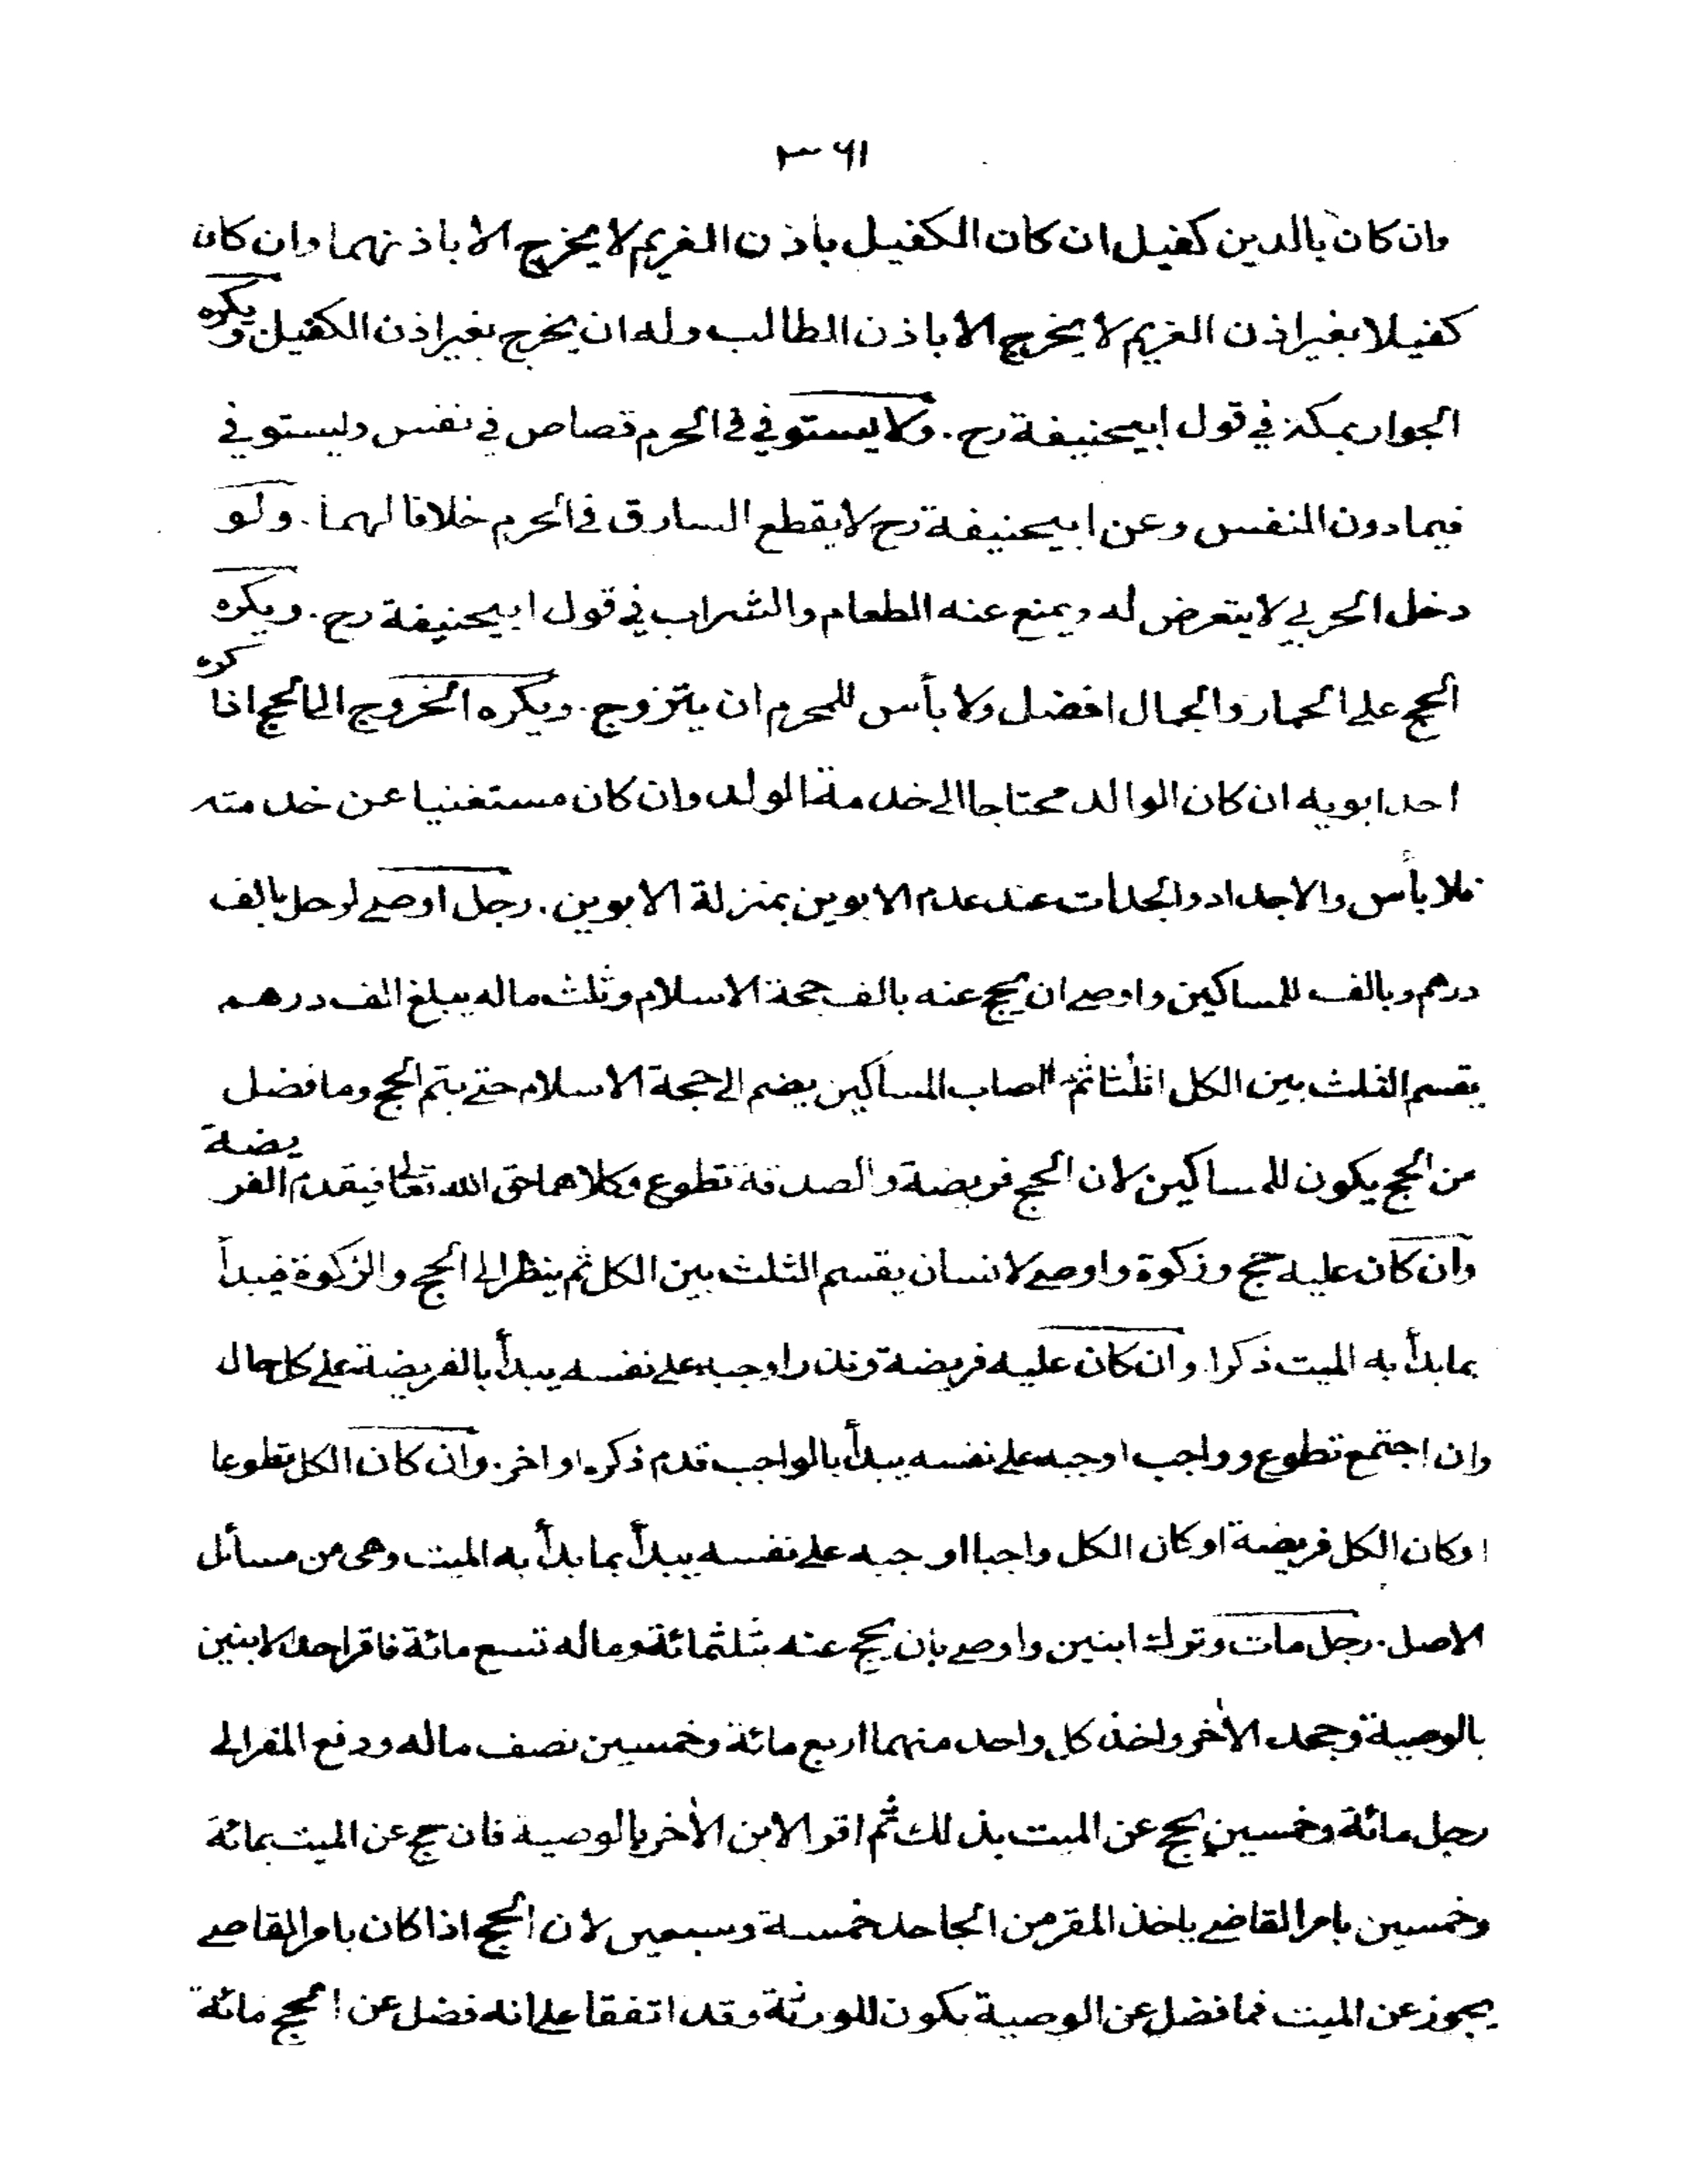 ٣٦١
وان كان بالدين كفيل ان كان الكفيل باذن الغريم لا يخرج الا باذنهما وان كان
كفيلا بغير اذن الغريم لا يخرج الا باذن الطالب وله ان يخرج بغير اذن الكفيل ويكره
الجوار بمكة في قول ابيحنيفة رح. ولا يستوفي في الحرم قصاص في نفس ويستوفي
فيما دون النفس وعن ابيحنيفة رح لا يقطع السارق في الحرم خلافا لهما. ولو
دخل الحربي لا يتعرض له ويمنع عنه الطعام والشراب في قول ابيحنيفة رح. ويكره
الحج على الحمار والجمال افضل ولا بأس للمحرم ان يتزوج. ويكره الخروج الى الحج اذا كره
احد ابويه ان كان الوالد محتاجا الى خدمة الولد وان كان مستغنيا عن خدمته
فلا بأس والاجداد والجدات عند عدم الابوين بمنزلة الابوين. رجل اوصى لرجل بالف
درهم وبالف للمساكين واوصى ان يحج عنه بالف حجة الاسلام وثلث ماله يبلغ الف درهم
يقسم الثلث بين الكل اثلثا ثم ما اصاب المساكين يضم الى حجة الاسلام حتى يتم الحج وما فضل
من الحج يكون للمساكين لان الحج فريضة والصدقة تطوع وكلاهما حق الله تعالى فيقدم الفريضة
وان كان عليه حج وزكوة واوصى لانسان يقسم الثلث بين الكل ثم ينظر الى الحج والزكوة فيبدأ
بما بدأ به الميت ذكرا. وان كان عليه فريضة ونذر اوجبه على نفسه يبدأ بالفريضة على كل حال
وان اجتمع تطوع وواجب اوجبه على نفسه يبدأ بالواجب قدم ذكره او اخر. وان كان الكل تطوعا
اوكان الكل فريضة اوكان الكل واجبا اوجبه على نفسه يبدأ بما بدأ به الميت وهى من مسائل
الاصل. رجل مات وترك ابنين واوصى بان يحج عنه بثلثمائة وماله تسع مائة فاقر احد الابنين
بالوصية وجحد الاٰخر واخذ كل واحد منهما اربع مائة وخمسين نصف ماله ودفع المقر الى
رجل مائة وخمسين يحج عن الميت بذلك ثم اقر الابن الاٰخر بالوصية فان حج عن الميت بمائة
وخمسين بامر القاضي ياخذ المقر من الجاحد خمسة وسبعين لان الحج اذا كان بامر القاضي
يجوز عن الميت فما فضل عن الوصية يكون للورثة وقد اتفقا على انه فضل عن الحج مائة